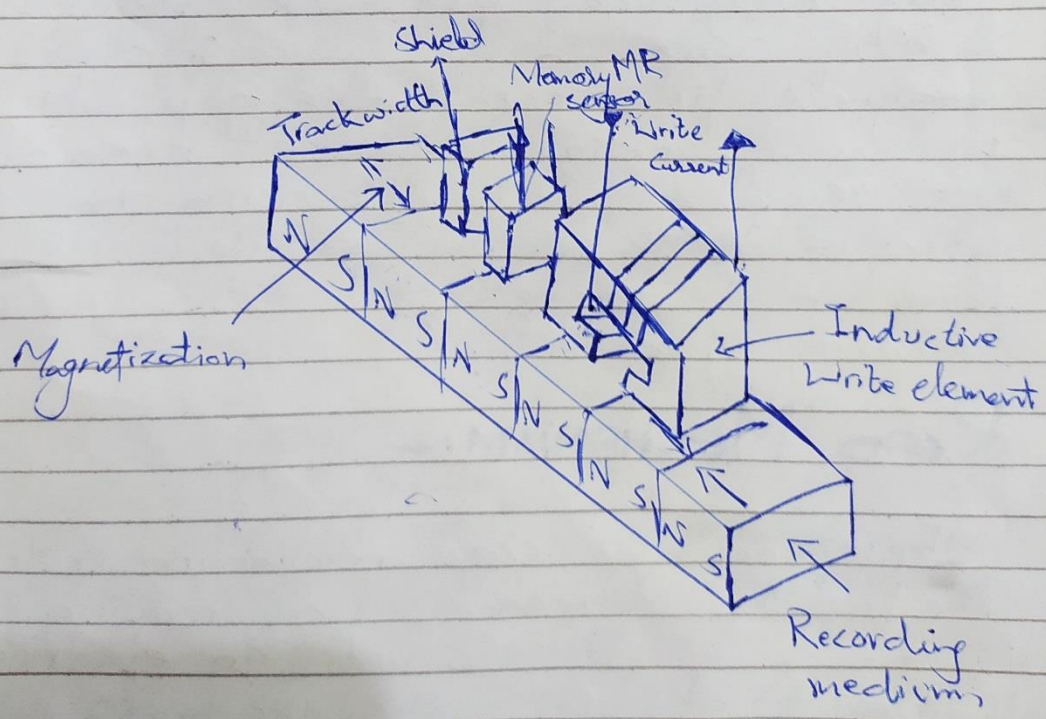 Shield
Memory MR
sensor
Trackwidth
Write
Current
N
S
N
S
N
S
N
S
N
S
N
S
Magnetization
Inductive
Write element
Recording
medium